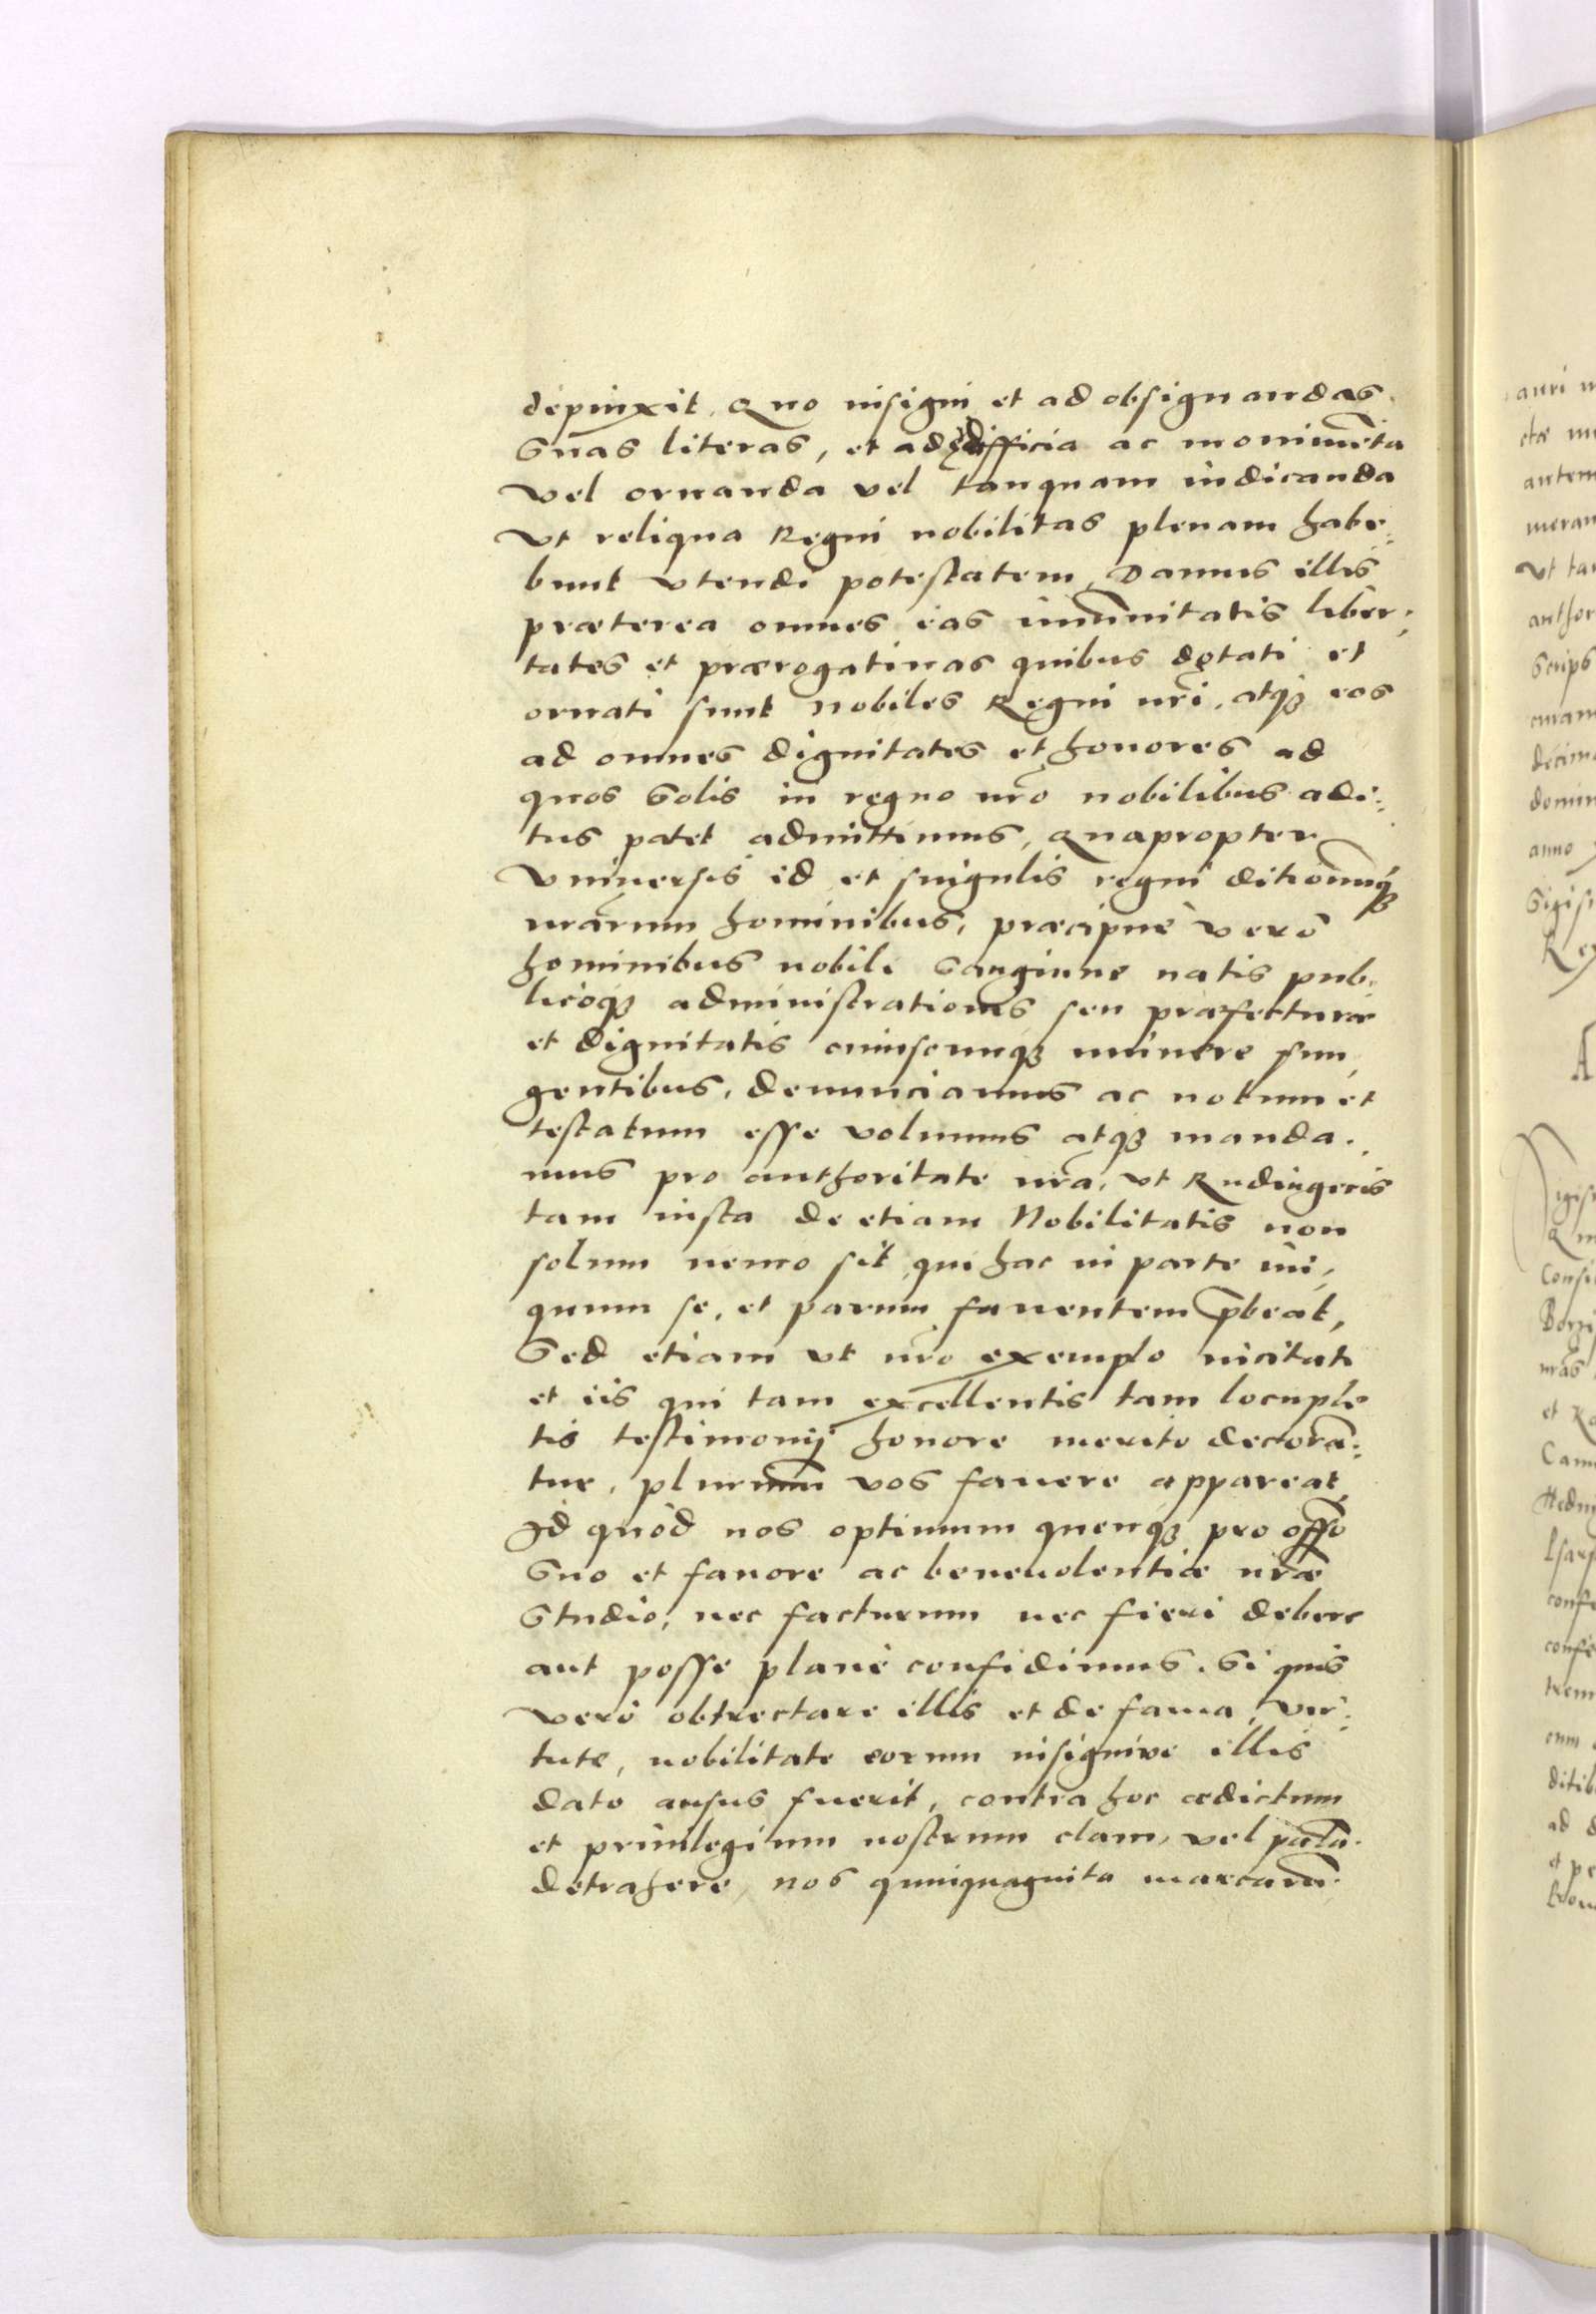 depinxit, Quo insigni et ad obsignandas
suas literas, et ad ædifficia ac monimēta
vel ornanda vel tanquam indicanda
Vt reliqua Regni nobilitas plenam habe:
bunt vtendi potestatem, Damus illis
præterea omnes eas imūnitatis liber:
tates et prærogatiuas quibus dotati et
ornati sunt nobiles Regni nr̃i, atq₃ eos
ad omnes dignitates et honores ad
quos solis in regno nr̃o nobilibus adi:
tus patet admittimus, Quapropter
Vniuersis id et singulis regni ditionumq₃
nr̃arum hominibus, præcipuè verò
hominibus nobili sanguine natis pub:
licóq₃ administrationis seu præfecturæ
et dignitatis cuiuscunq₃ munere fun,
gentibus, denunciamus ac notum et
testatum esse volumus atq₃ manda:
mus pro authoritate nr̃a, vt Rudingeris
tam iusta de etiam Nobilitatis non
solum nemo sit qui hac in parte ini,
quum se, et parum fauentem p̄beat,
Sed etiam vt nr̃o exemplo incitati
et iis qui tam excellentis tam locuple
tis testimonij honore merito decorā:
tur, plurimū vos fauere appareat
Id quòd nos optimum quenq₃ pro offō
suo et fauore ac beneuolentiæ nr̃æ
studio, nec facturum nec fieri debere
aut posse planè confidimus. Si quis
verò obtrectare illis et de fama, vir:
tute, nobilitate eorum insigniue illis
dato ausus fuerit, contra hoc ædictum
et priuilegium nostrum clam, vel palā
detrahere, nos quinquaginta marcarū
auri
autem
vt ta
author
scrips
decim
domin
anno
Sigis
Re
A
confe
ad